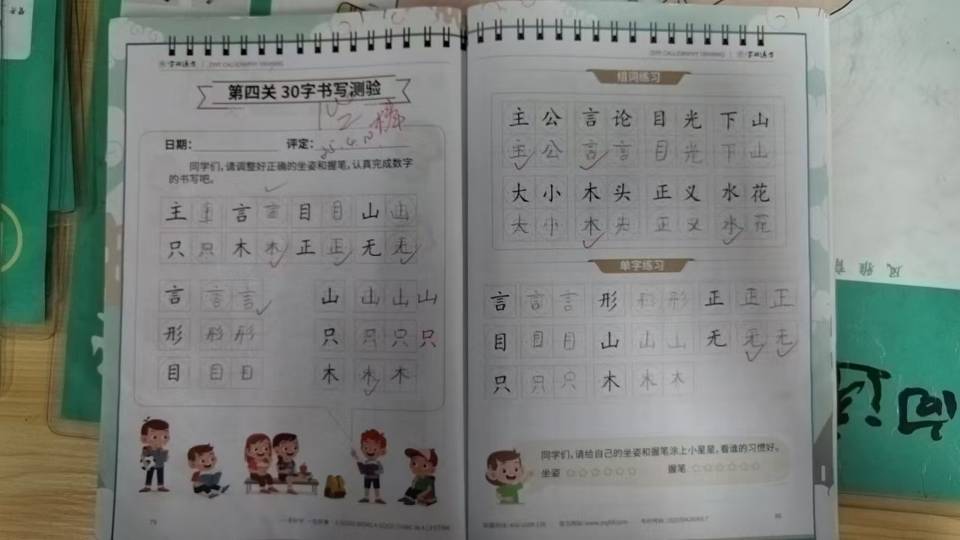 第四关 30字书写测验
日期： 评定：
同学们，请调整好正确的坐姿和握笔，认真完成数字
的书写吧。
主 主 言 言 目 目 山 山
只 只 木 木 正 正 无 无
言 言 言 山 山 山 山
形 形 形 只 只 只 只
目 目 目 木 木 木
79
组词练习
主 公 言 论 目 光 下 山
主 公 言 言 目 光 下 山
大 小 木 头 正 义 水 花
大 小 木 头 正 义 水 花
单字练习
言 言 言 形 形 形 正 正 正
目 目 目 山 山 山 无 无 无
只 只 只 木 木 木
同学们，请给自己的坐姿和握笔涂上小星星，看谁的习惯好。
坐姿 ☆☆☆☆☆☆ 握笔 ☆☆☆☆☆☆
80